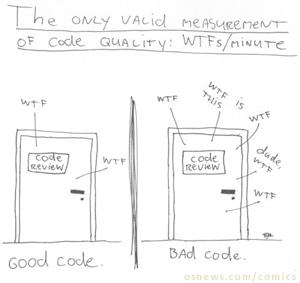 The ONLY VALID MEASUREMENT
OF CODE QUALITY: WTFs/MINUTE
WTF
CODE
REVIEW
WTF
GOOD CODE.
WTF
WTF IS
THIS
WTF
CODE
REVIEW
dude,
WTF
WTF
BAD CODE.
osnews.com/comics